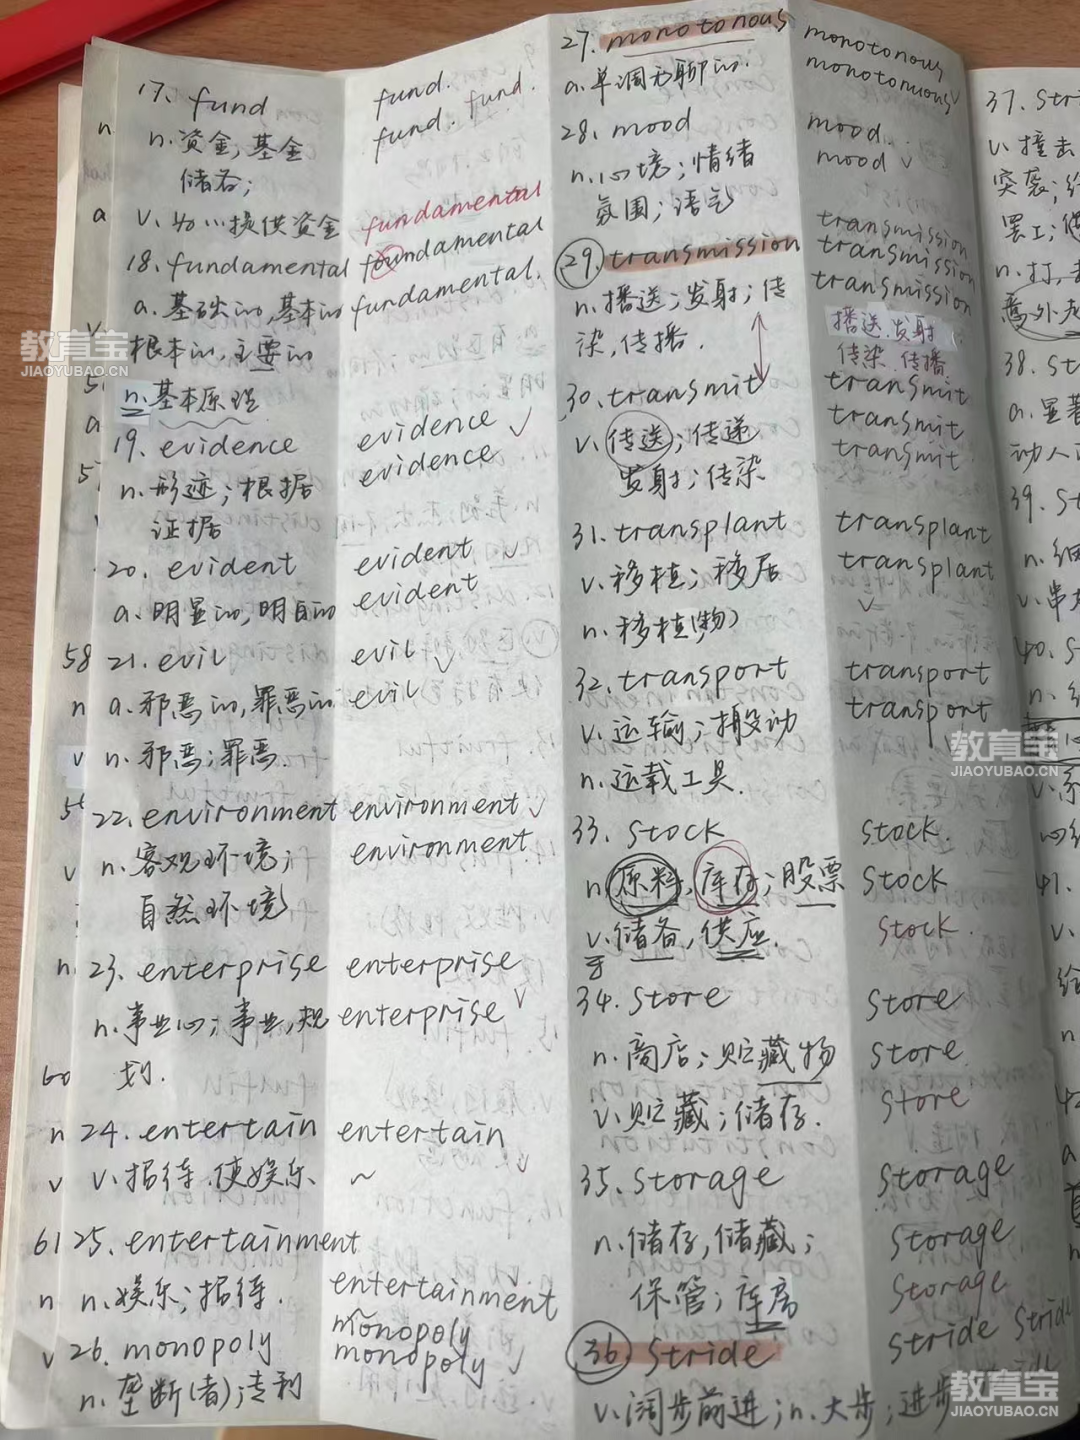 17. fund
n. 资金; 基金
储存;
v. 为…提供资金
18. fundamental
a. 基础的, 基本的
根本的, 主要的
n. 基本原理
19. evidence
n. 形迹; 根据
证据
20. evident
a. 明显的, 明白的
21. evil
a. 邪恶的, 罪恶的
n. 邪恶; 罪恶.
22. environment
n. 客观环境;
自然环境
23. enterprise
n. 事业心; 事业, 规
划.
24. entertain
v. 招待. 使娱乐
25. entertainment
n. 娱乐; 招待.
26. monopoly
n. 垄断(者); 专利
fund.
fund. fund.
fundamental
foundamental
fundamental.
evidence
evidence
evident
evident
evil
evil
environment
environment
enterprise
enterprise
entertain
~
entertainment
monopoly
monopoly
27. monotonous
a. 单调无聊的.
28. mood
n. 心境; 情绪
氛围; 语气
29. transmission
n. 播送; 发射; 传
染, 传播.
30. transmit
v. 传送; 传递
发射; 传染
31. transplant
v. 移植; 移居
n. 移植(物)
32. transport
v. 运输; 搬动
n. 运载工具.
33. stock
n. 原料, 库存; 股票
v. 储备, 供应.
34. store
n. 商店; 贮藏物
v. 贮藏; 储存.
35. storage
n. 储存, 储藏;
保管; 库房
36 stride
v. 阔步前进; n. 大步; 进步
monotonous
monotonuous
mood.
mood
transmission
transmission
transmission
播送. 发射
传染. 传播
transmit
transmit
transmit.
transplant
transplant
transport
transport
stock.
stock
stock.
store
store.
store
storage
storage
storage
stride
37. stri
v. 撞击
突袭; 
罢工; 
n. 打, 
意外
38. st
a. 显著
动人
39. st
n. 细
v. 串
40. s
41.
v.
给
n
58
n
v
v
n
60
n
v
61
n
v
n
a
教育宝
JIAOYUBAO.CN
教育宝
JIAOYUBAO.CN
教育宝
JIAOYUBAO.CN